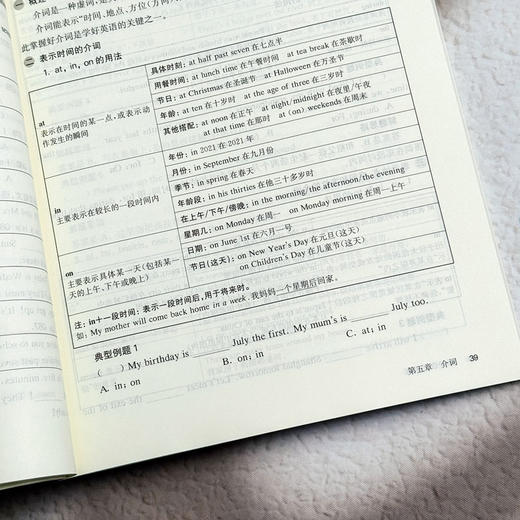 一 概述
介词是一种虚词,
介词能表示“时间、地点、方位(方向)
此掌握好介词是学好英语的关键之一。
二 表示时间的介词
1. at, in, on 的用法
at
表示在时间的某一点,或表示动
作发生的瞬间
具体时刻: at half past seven 在七点半
用餐时间: at lunch time 在午餐时间 at tea break 在茶歇时
节日: at Christmas 在圣诞节 at Halloween 在万圣节
年龄: at ten 在十岁时 at the age of three 在三岁时
其他搭配: at noon 在正午 at night/midnight 在夜里/午夜
at that time 在那时 at (on) weekends 在周末
in
主要表示在较长的一段时间内
年份: in 2021 在 2021 年
月份: in September 在九月份
季节: in spring 在春天
年龄段: in his thirties 在他三十多岁时
在上午/下午/傍晚: in the morning/the afternoon/the evening
on
主要表示具体某一天(包括某一
天的上午、下午或晚上)
星期几: on Monday 在周一 on Monday morning 在周一上午
日期: on June 1st 在六月一号
节日(这天): on New Year's Day 在元旦(这天)
on Children's Day 在儿童节(这天)
注: in+一段时间: 表示一段时间后,用于将来时。
如: My mother will come back home in a week. 我妈妈一个星期后回家。
典型例题 1
( ) My birthday is ______ July the first. My mum's is ______ July too.
A. in; on B. on; in C. at; in
第五章 介词 39